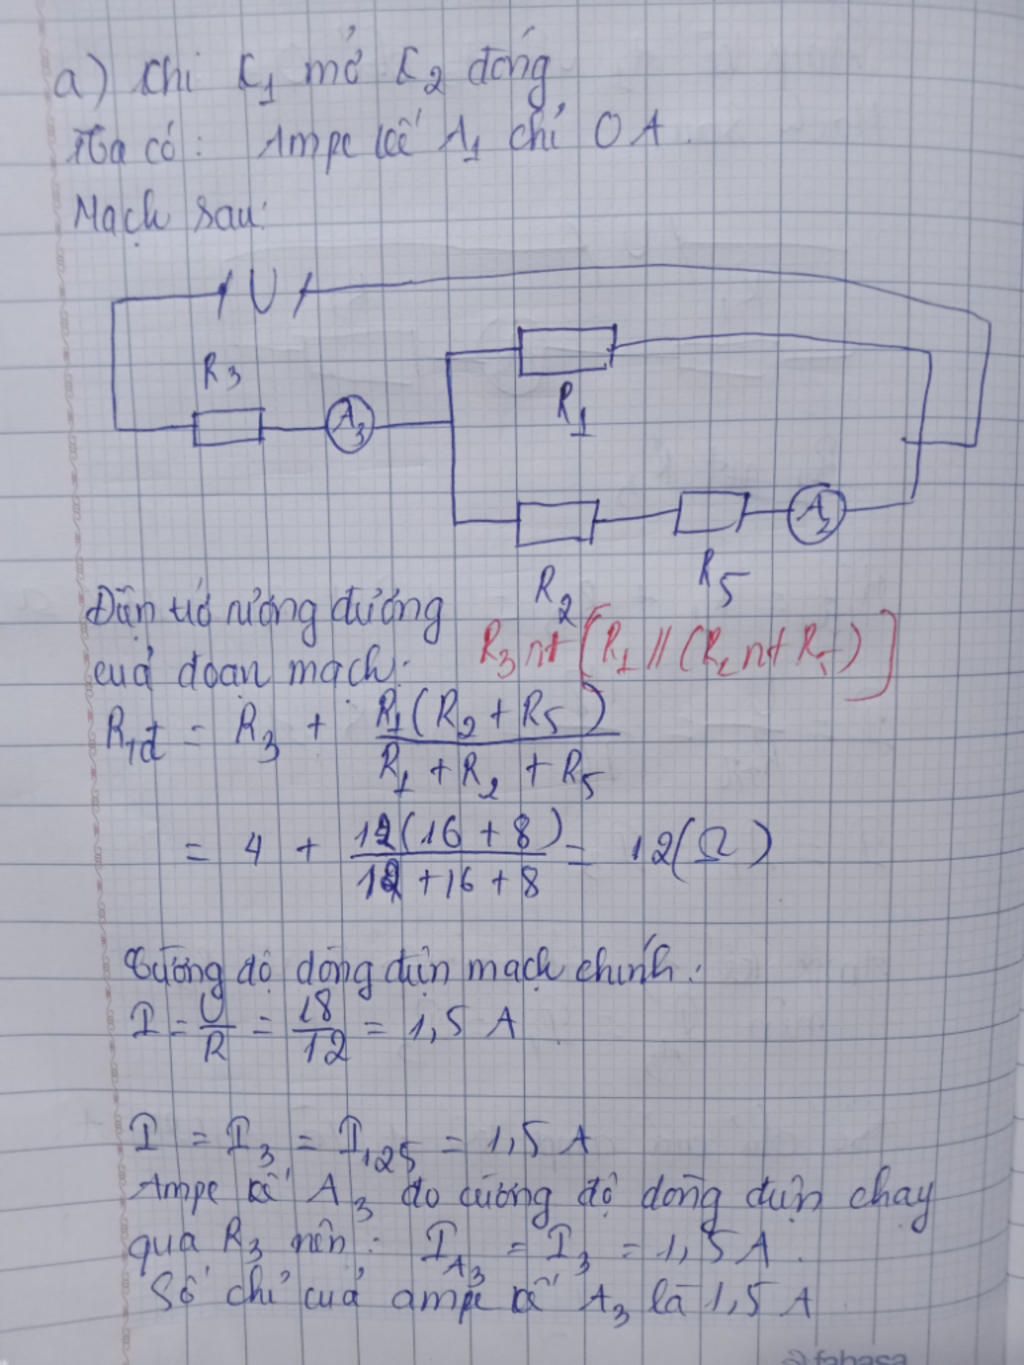 a) Khi K1 mở K2 đóng
Ta có: Ampe kế A1 chỉ 0 A.
Mạch sau:
U
R3
A3
R1
A2
R2
R5
Điện trở tương đương
R3 nt [R1 // (R2 nt R5)]
của đoạn mạch:
Rtđ = R3 + R1(R2 + R5) / R1 + R2 + R5
= 4 + 12(16 + 8) / 12 + 16 + 8 = 12(Ω)
Cường độ dòng điện mạch chính:
I = U/R = 18/12 = 1,5 A
I = I3 = I125 = 1,5 A
Ampe kế A3 đo cường độ dòng điện chạy
qua R3 nên: IA3 = I3 = 1,5 A.
Số chỉ của ampe kế A3 là 1,5 A
fahasa